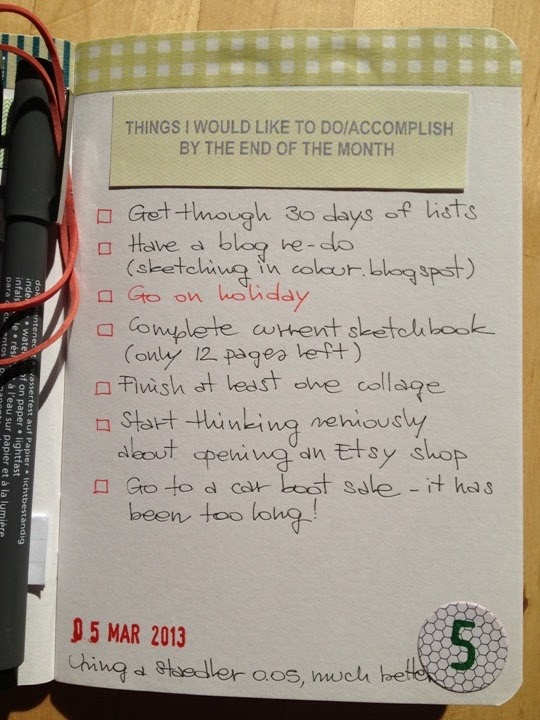 THINGS I WOULD LIKE TO DO/ACCOMPLISH
BY THE END OF THE MONTH
Get through 30 days of lists
Have a blog re-do
(sketching in colour.blogspot)
Go on holiday
Complete current sketchbook
(only 12 pages left)
Finish at least one collage
Start thinking seriously
about opening an Etsy shop
Go to a car boot sale - it has
been too long!
05 MAR 2013
5
Using a Staedler 0.05, much better
wasserfest auf Papier • lichtbeständig
on paper • lightfast
à l'eau sur papier et à la lumière